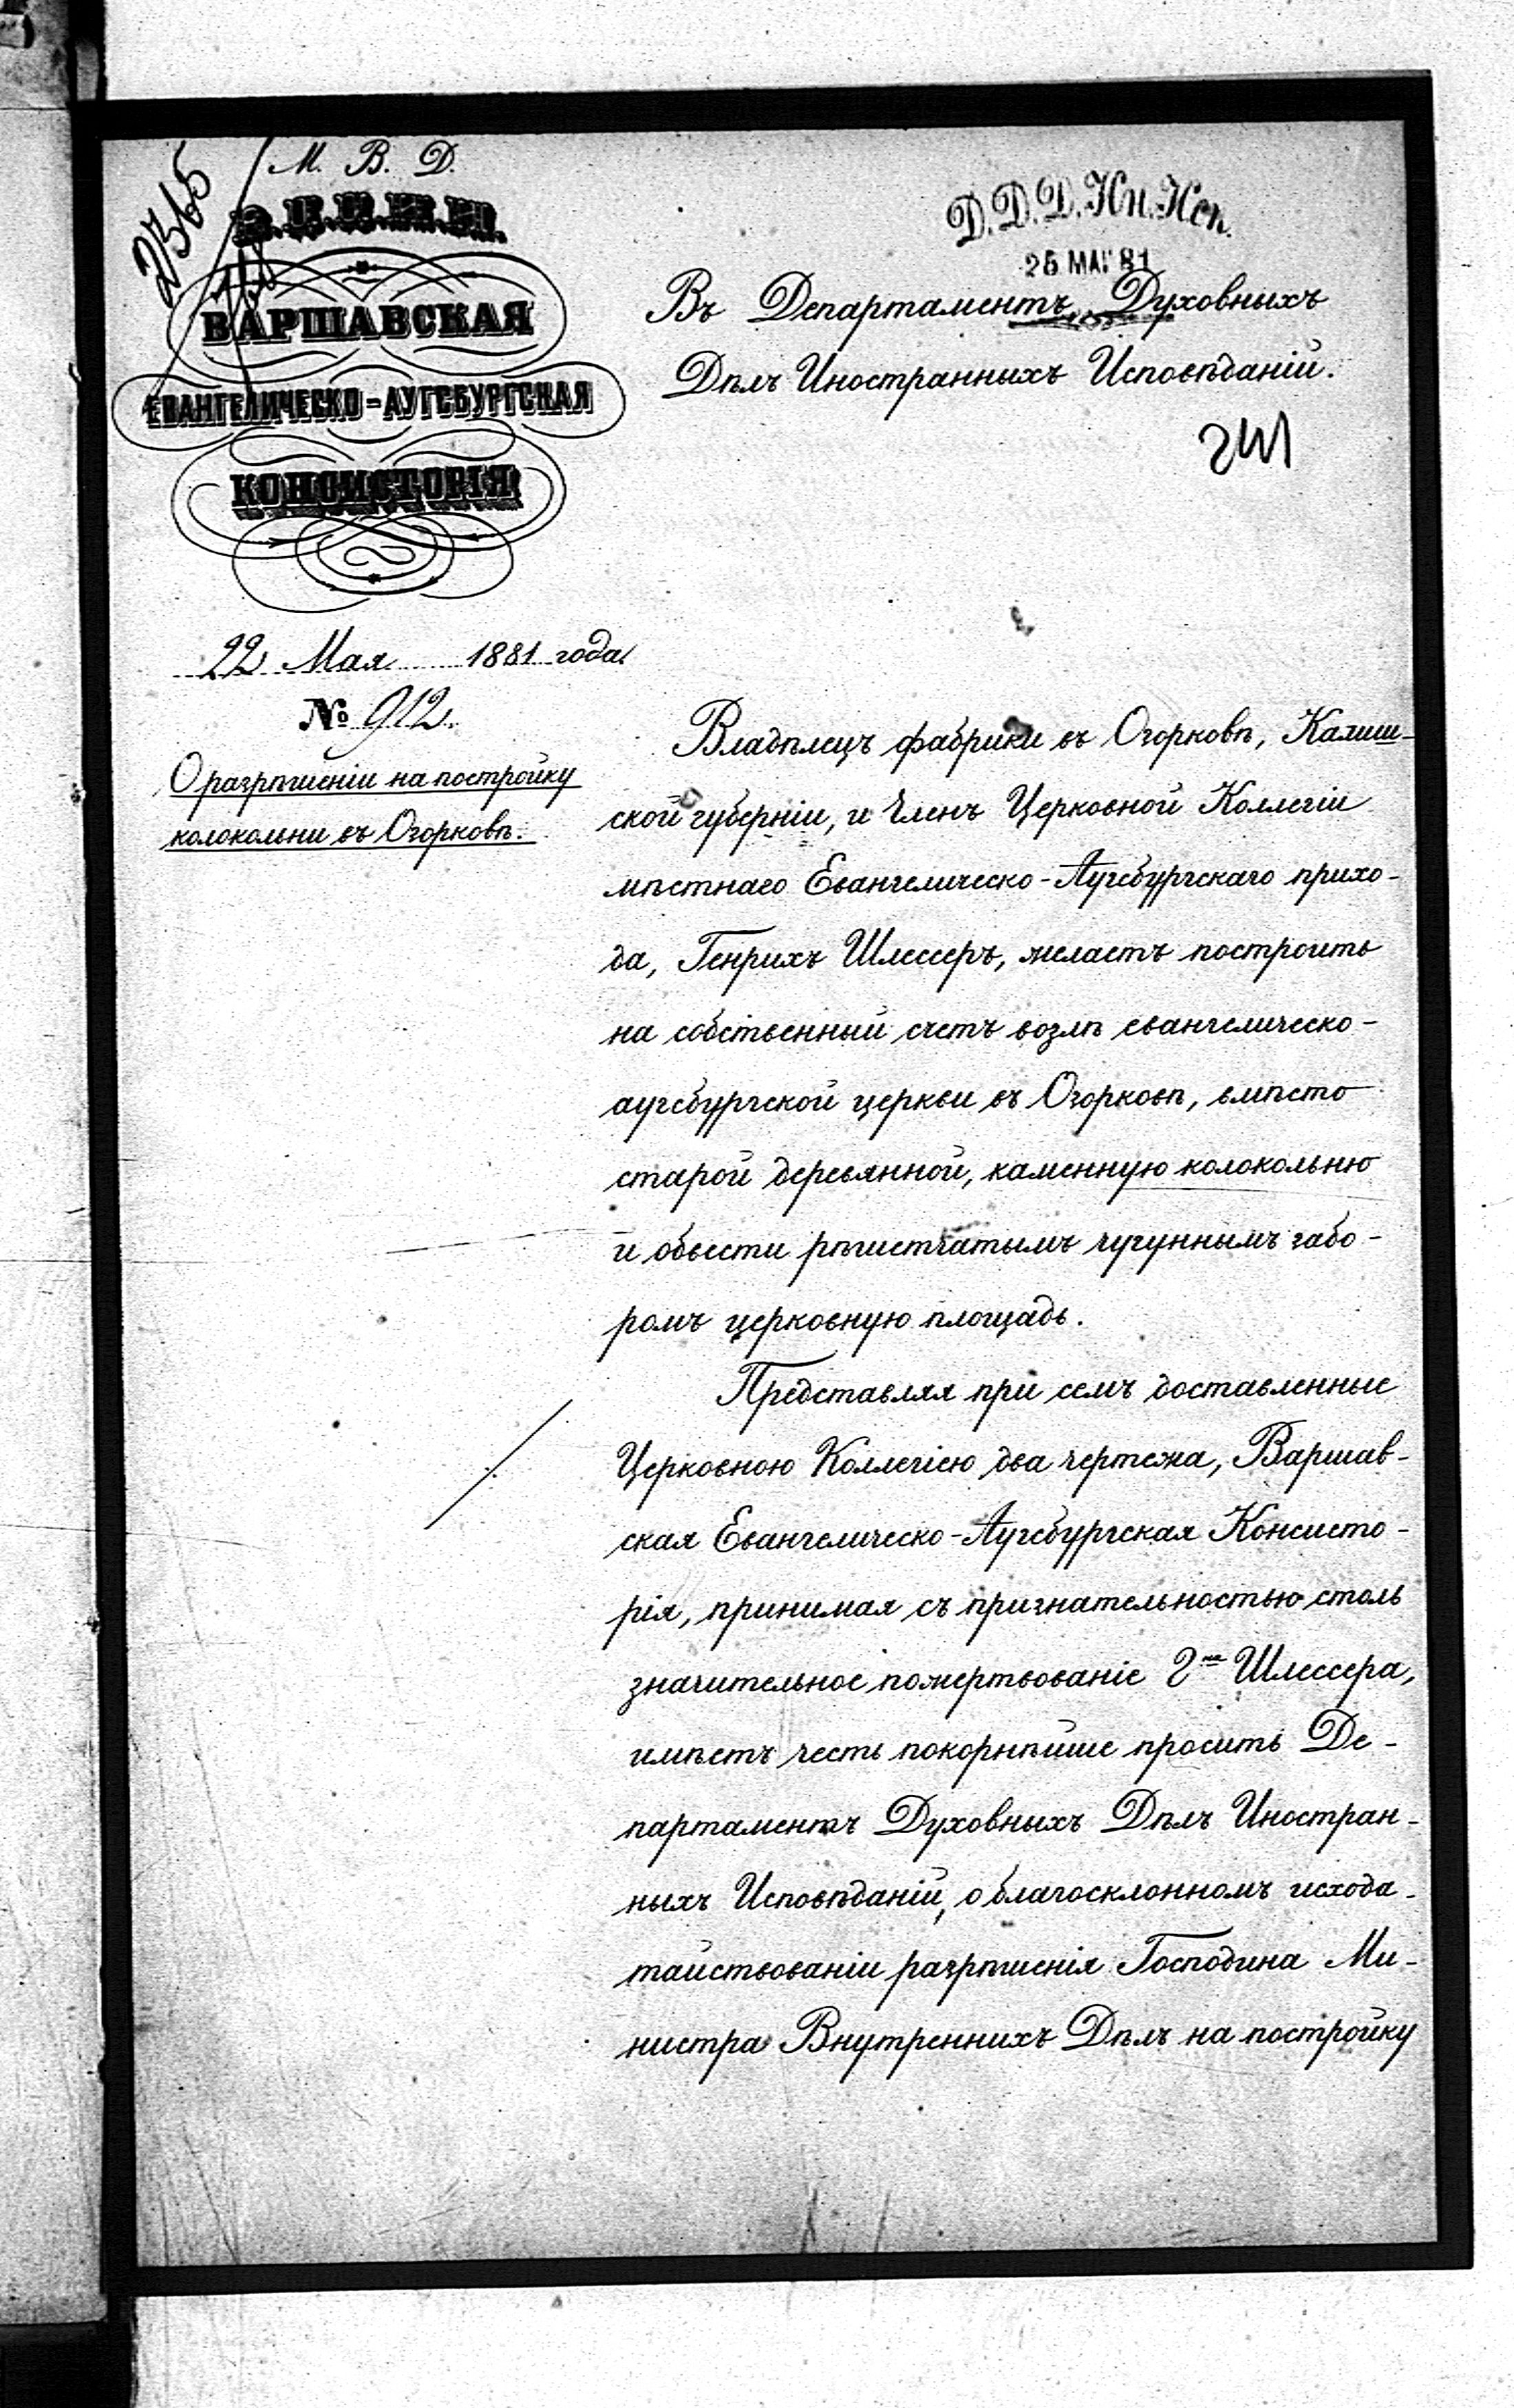 2365
М. В. Д.
ВАРШАВСКАЯ
ЕВАНГЕЛИЧЕСКО-АУГСБУРГСКАЯ
КОНСИСТОРІЯ
22 Мая 1881 года
№ 912.
О разрѣшеніи на постройку
колокольни въ Озорковѣ.
Д.Д.Д.Ин.Исп.
26 МАГ 81
Въ Департаментъ Духовныхъ
Дѣлъ Иностранныхъ Исповѣданій.
Владѣлецъ фабрики въ Озорковѣ, Калиш-
ской губерніи, и Членъ Церковной Коллегіи
мѣстнаго Евангелическо-Аугсбургскаго прихо-
да, Генрихъ Шлессеръ, желаетъ построить
на собственный счетъ возлѣ евангелическо-
аугсбургской церкви въ Озорковѣ, вмѣсто
старой деревянной, каменную колокольню
и обвести рѣшетчатымъ чугуннымъ забо-
ромъ церковную площадь.
Представляя при семъ доставленные
Церковною Коллегіею два чертежа, Варшав-
ская Евангелическо-Аугсбургская Консисто-
рія, принимая съ признательностью столь
значительное пожертвованіе Г-на Шлессера,
имѣетъ честь покорнѣйше просить Де-
партаментъ Духовныхъ Дѣлъ Иностран-
ныхъ Исповѣданій, о благосклонномъ исхода-
тайствованіи разрѣшенія Господина Ми-
нистра Внутреннихъ Дѣлъ на постройку